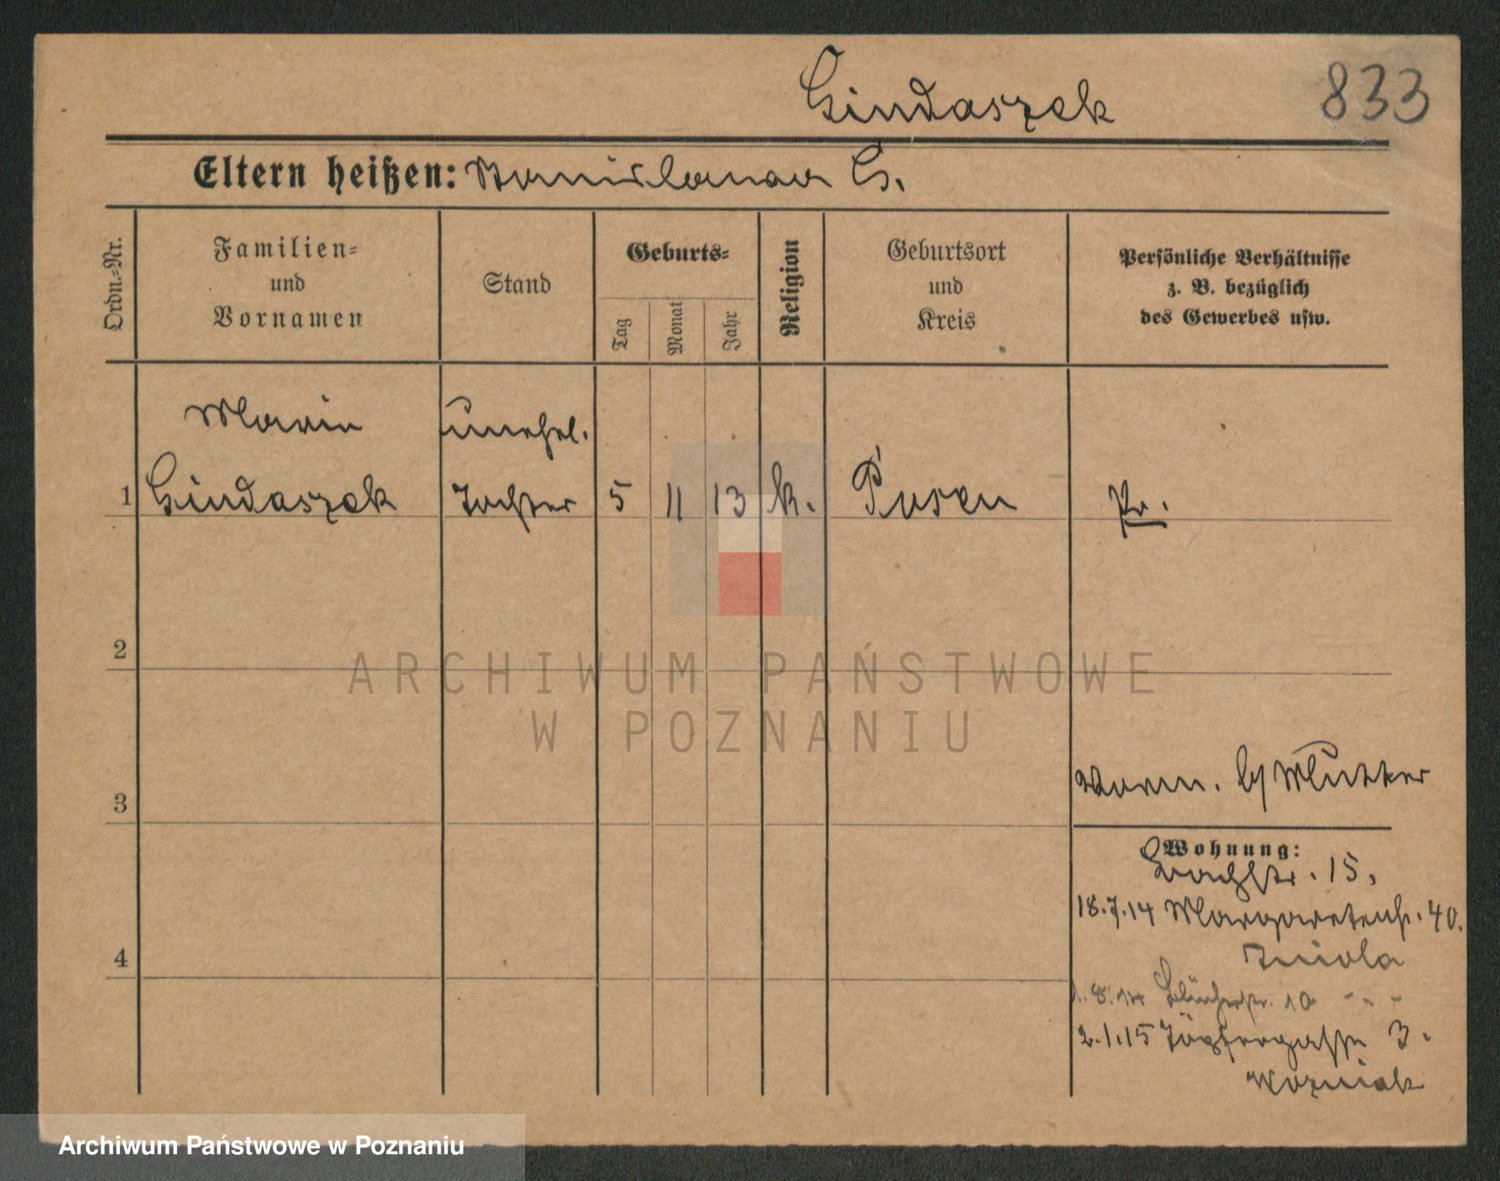 Gindaszek 833
Eltern heißen: Stanislawa G.
Ordn.-Nr.
Familien-
und
Vornamen
Stand
Geburts-
Tag
Monat
Jahr
Religion
Geburtsort
und
Kreis
Persönliche Verhältnisse
z. B. bezüglich
des Gewerbes usw.
Marie unehel.
1 Gindaszek Tochter 5 11 13 k. Posen Pr.
2
3
Vorm. Mutter
Wohnung:
15.
18.7.14 Margaretenstr. 40.
1.8.14 10 " " "
2.1.15 3.
Wozniak
4
ARCHIWUM PAŃSTWOWE
W POZNANIU
Archiwum Państwowe w Poznaniu